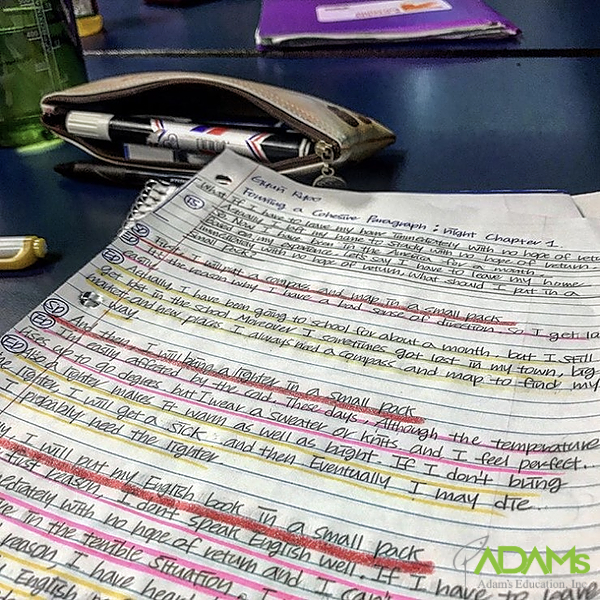 Forming a Cohesive Paragraph : Night Chapter 1.
What if I have to leave my hour immediately with no hope of retu
TS
Finally I left my home to study with no hope of return.
So Now I have been in the America for a month.
Based on my experience. Let's say I have to leave my home
with no hope of return. What should I put in a
small pack?
SD
First, I will put a compass and map in a small pack
the reason why I have a bad sense of direction. so I get los
easily
EL
Actually I have been going to school for about a month, but I still
get lost in the school. Moreover I sometimes got lost in my town, big
and new places. I always need a compass and map to find my
way
SD
And then, I will bring a lighter in a small pack
easily affected by the cold. These days, Although the temperature
goes up to 90 degrees, but I wear a sweater or knits and I feel perfect..
a lighter makes it warm as well as bright. If I don't bring
the lighter I will get a sick and then Eventually I may die..
I probably need the lighter
I will put my English book in a small pack
first reason, I don't speak English well. If I have to leave
mediately with no hope of return and I can't
in the terrible situation.
reason, I have
English
ADAMs
Adam's Education, Inc